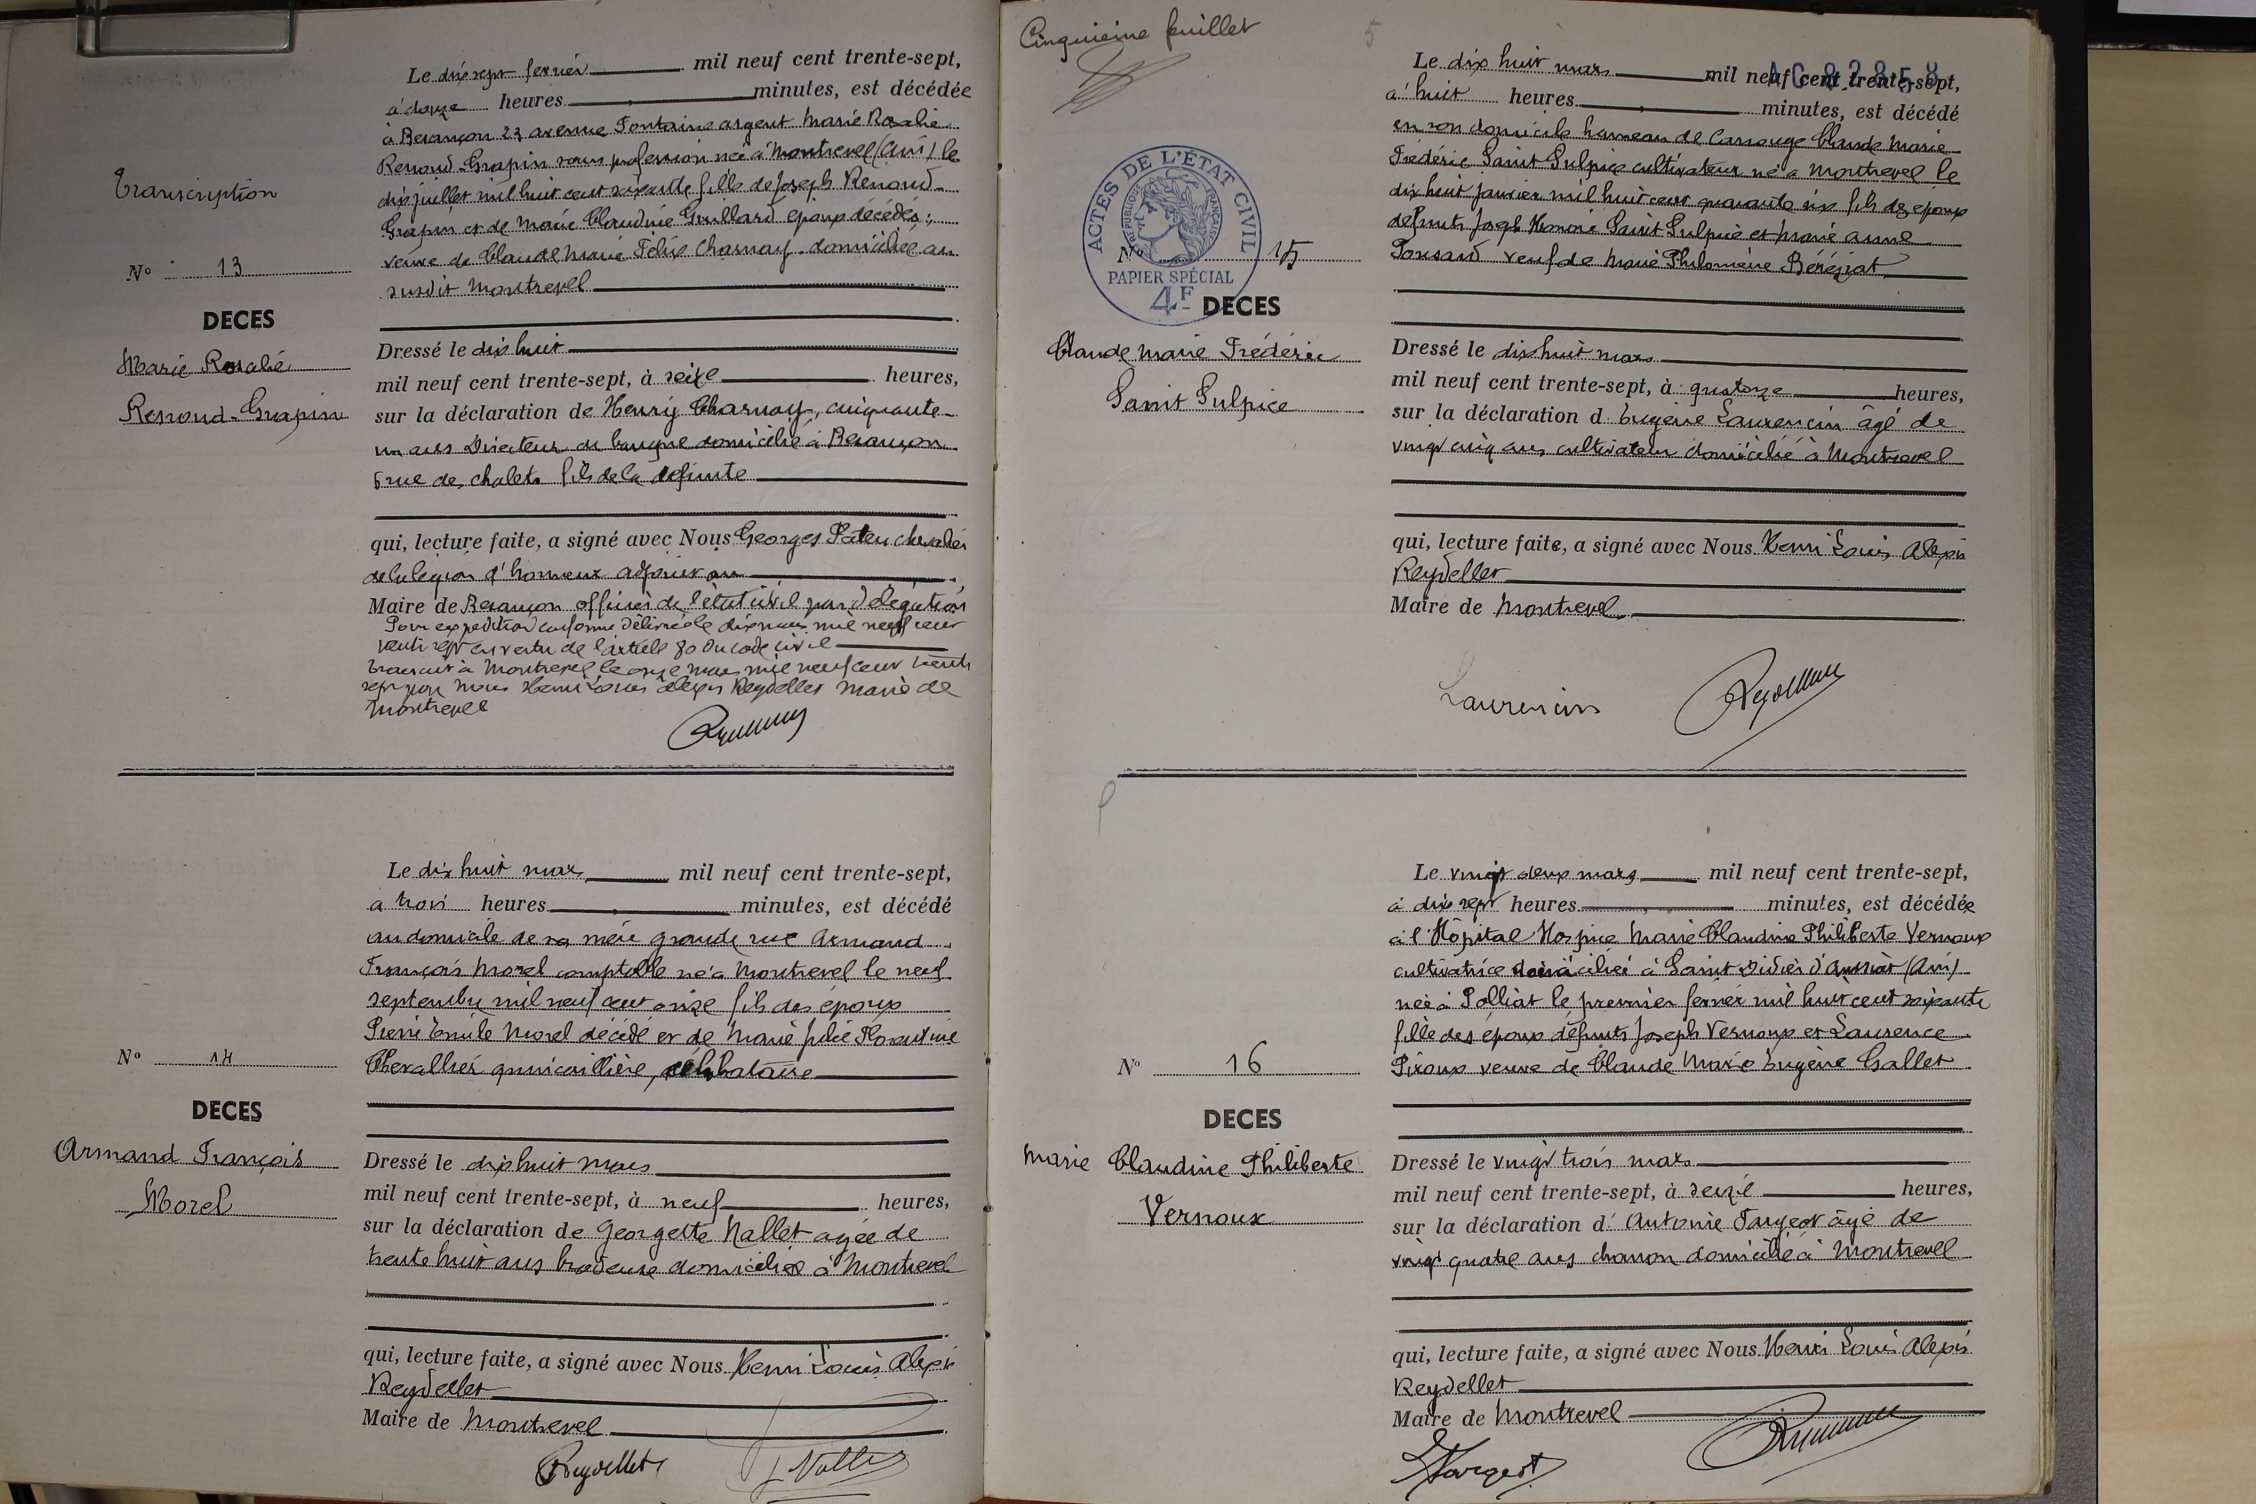 Transcription
N° 13
DECES
Marie Rosalie
Renoud-Grapin
Le dix sept fevrier mil neuf cent trente-sept,
à douze heures minutes, est décédée
à Besançon 23 avenue Fontaine argent Marie Rosalie
Renoud-Grapin sans profession née à Montrevel (Ain) le
dix juillet mil huit cent soixante fille de Joseph Renoud-
Grapin et de Marie Claudine Guillard époux décédés,
veuve de Claude Marie Félix Charnay domiciliée au
susdit Montrevel
Dressé le dix huit
mil neuf cent trente-sept, à seize heures,
sur la déclaration de Henry Charnay, cinquante-
un ans Directeur de banque domicilié à Besançon
5 rue des chalets fils de la defunte
qui, lecture faite, a signé avec Nous Georges Pateu chevalier
de la légion d'honneur adjoint au
Maire de Besançon officier de l'état civil par délégation
Pour expedition conforme délivrée le dix neuf mil neuf cent
trente sept en vertu de l'article 80 du code civil
transcrit à Montrevel le onze mars mil neuf cent trente
sept par nous Henri Louis Alexis Reydellet Maire de
Montrevel
N° 14
DECES
Armand François
Morel
Le dix huit mars mil neuf cent trente-sept,
a trois heures minutes, est décédé
au domicile de sa mère grande rue Armand
François Morel comptable né à Montrevel le neuf
septembre mil neuf cent onze fils des époux
Pierre Emile Morel décédé et de Marie Julie Florentine
Chevallier quincaillière, célibataire
Dressé le dix huit mars
mil neuf cent trente-sept, à neuf heures,
sur la déclaration de Georgette Nallet agée de
trente huit ans brodeuse domiciliée à Montrevel
qui, lecture faite, a signé avec Nous Henri Louis Alexis
Reydellet
Maire de Montrevel
Reydellet
G Nallet
Cinquième feuillet
5
AC 82858
ACTES DE L'ÉTAT CIVIL
RÉPUBLIQUE FRANÇAISE
PAPIER SPÉCIAL
4F
N° 15
DECES
Claude Marie Frédéric
Saint Sulpice
Le dix huit mars mil neuf cent trente-sept,
a huit heures minutes, est décédé
en son domicile hameau de Carrouge Claude Marie
Frédéric Saint Sulpice cultivateur né a Montrevel le
dix huit janvier mil huit cent quarante six fils des époux
defunts Joseph Honoré Saint Sulpice et Marie Anne
Ponsard veuf de Marie Philomène Béréziat
Dressé le dix huit mars
mil neuf cent trente-sept, à quatorze heures,
sur la déclaration d Eugene Laurencin âgé de
vingt cinq ans cultivateur domicilié à Montrevel
qui, lecture faite, a signé avec Nous Henri Louis Alexis
Reydellet
Maire de Montrevel
Laurencin
Reydellet
N° 16
DECES
Marie Claudine Philiberte
Vernoux
Le vingt deux mars mil neuf cent trente-sept,
à dix sept heures minutes, est décédée
à l'Hôpital Hospice Marie Claudine Philiberte Vernoux
cultivatrice domiciliée à Saint Didier d'Aussiat (Ain)
née à Polliat le premier février mil huit cent soixante
fille des époux défunts Joseph Vernoux et Laurence
Piroux veuve de Claude Marie Eugène Gallet
Dressé le vingt trois mars
mil neuf cent trente-sept, à seize heures,
sur la déclaration d' Antonie Fargeot âgé de
vingt quatre ans charron domicilié à Montrevel
qui, lecture faite, a signé avec Nous Henri Louis Alexis
Reydellet
Maire de Montrevel
Fargeot